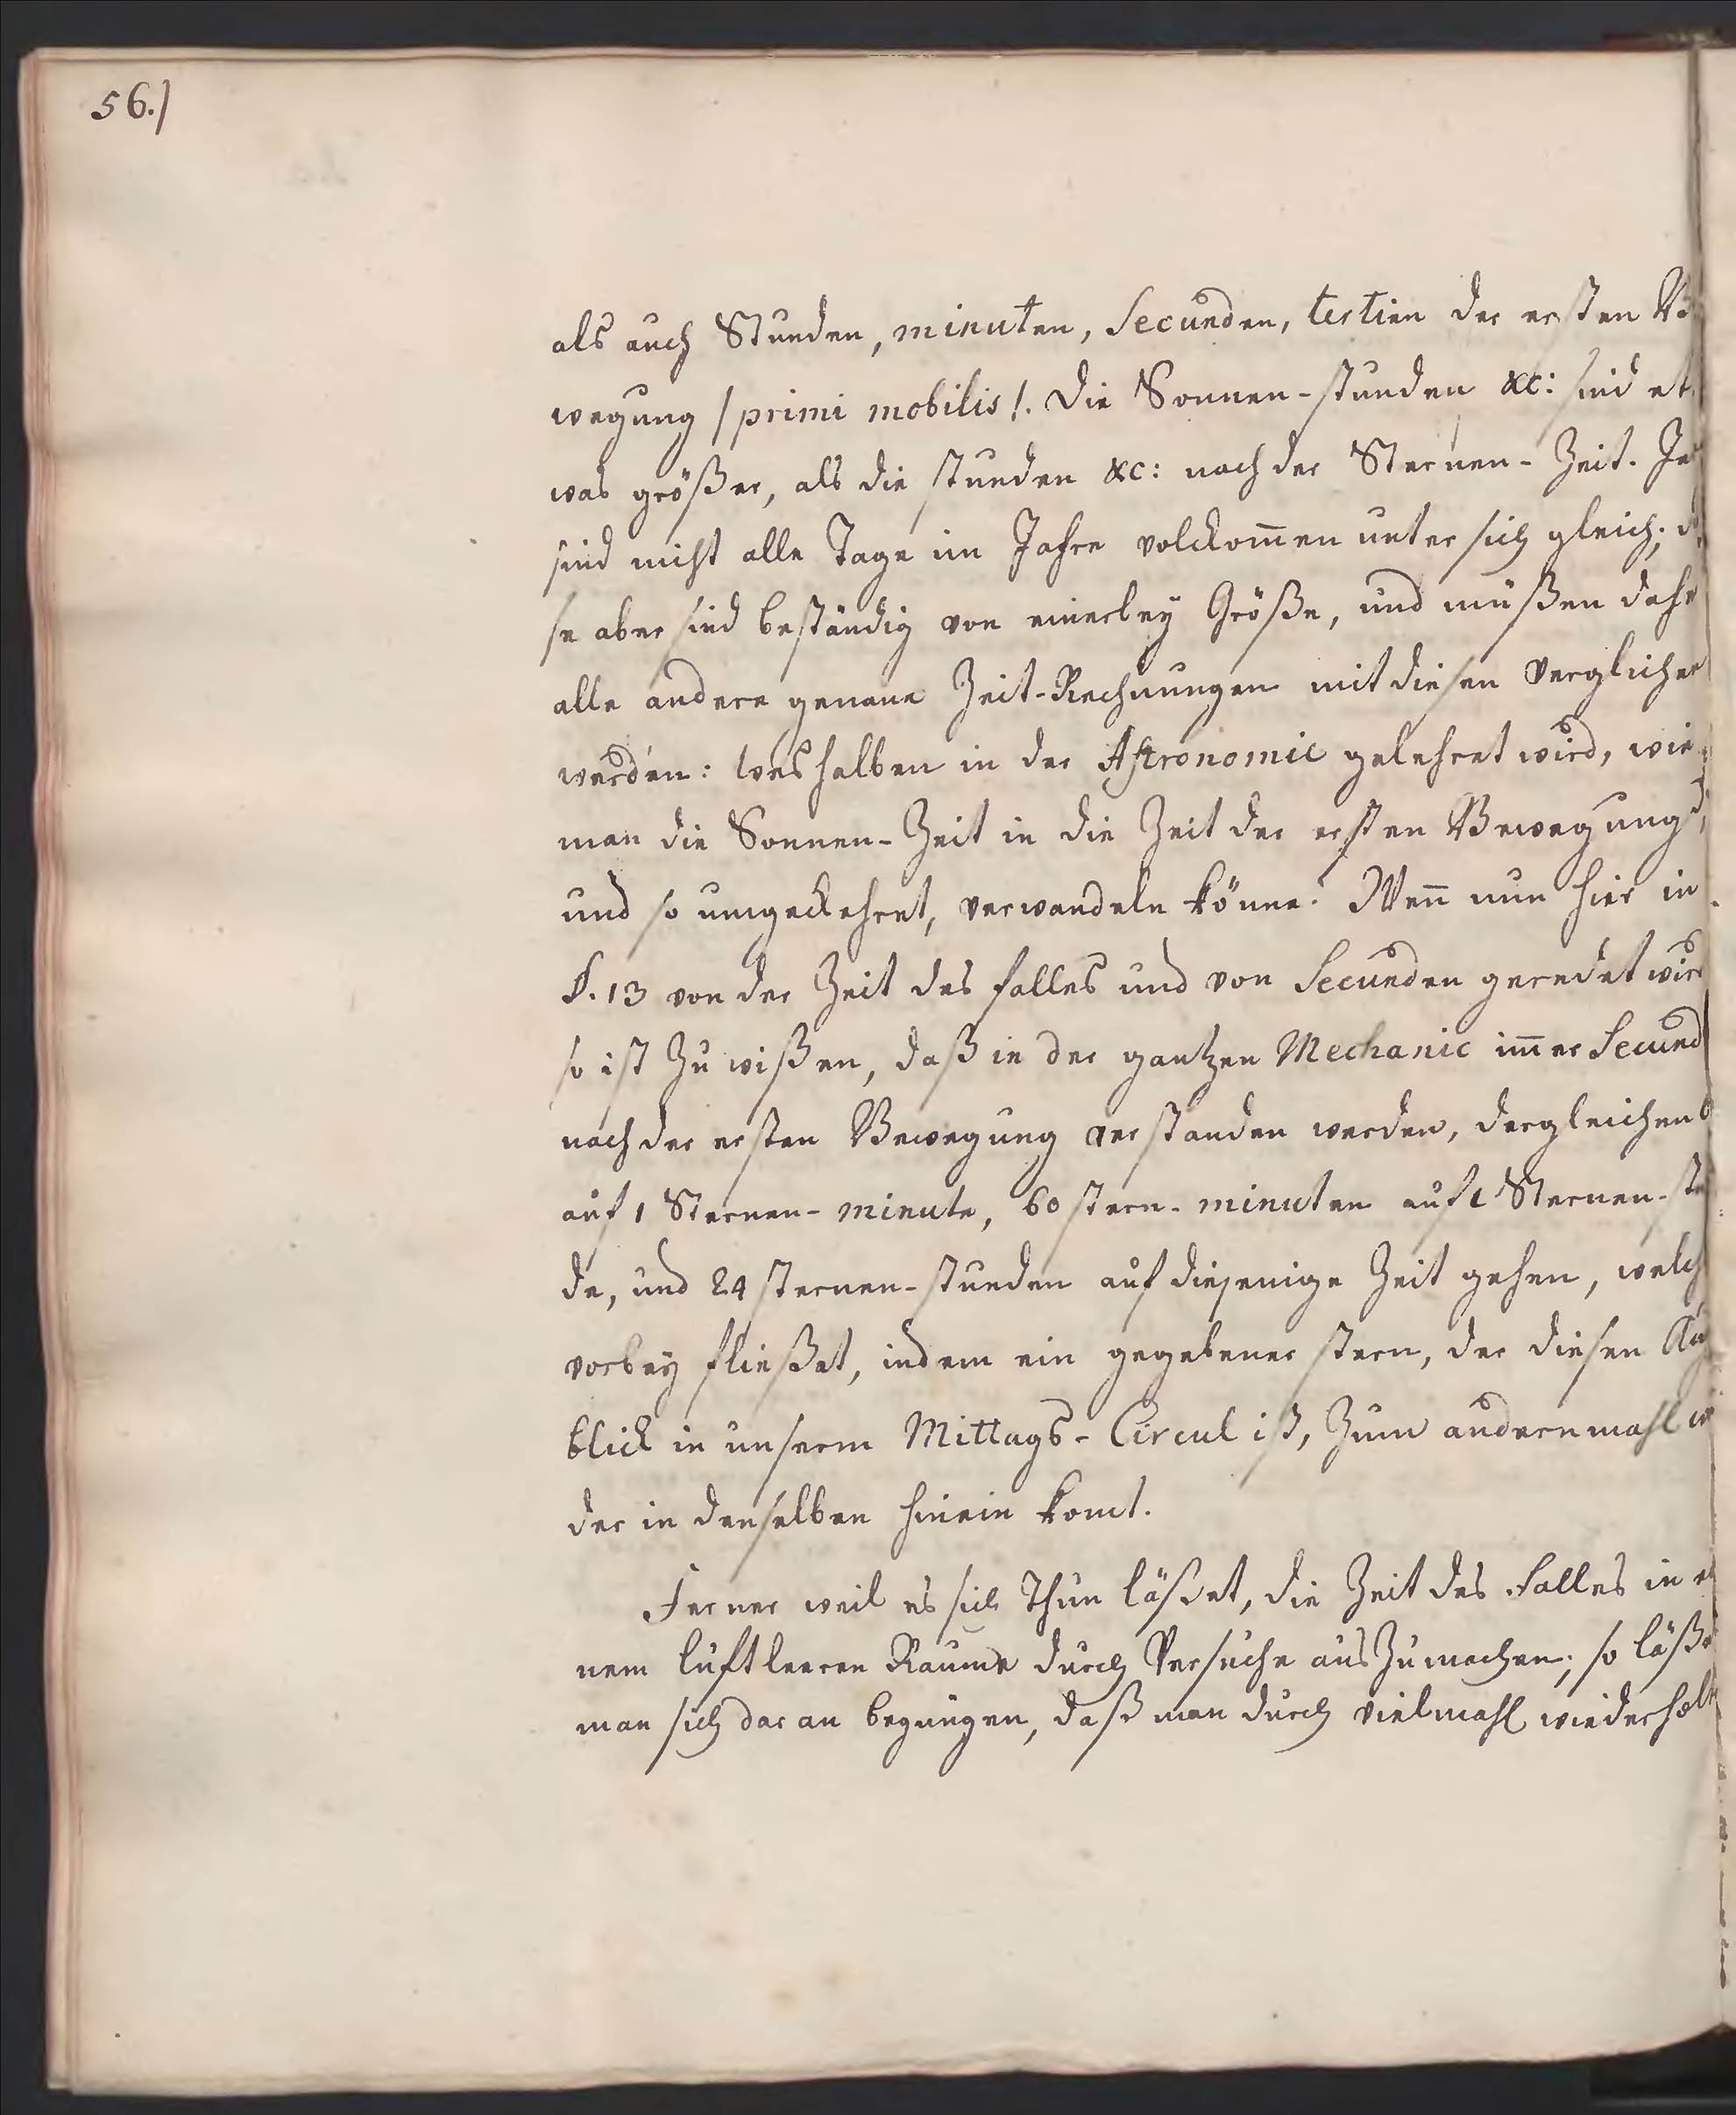 56.)
als auch Stunden, minuten, Secunden, tertien der ersten Be
wegung /primi mobilis/. Die Sonnen-stunden &c: sind et
was größer, als die stunden &c: nach der Sternen-Zeit. Je
sind nicht alle Tage im Jahre volckom̄en unter sich gleich; d
se aber sind beständig von einerley Größe, und müßen dahe
alle andere genaue Zeit-Rechnungen mit diesen verglichen
werden: weshalben in der Astronomie gelehret wird, wie
man die Sonnen-Zeit in die Zeit der ersten Bewegung,
und so umgekehret, verwandeln könne. Wen̄ nun hier in
§. 13 von der Zeit des falles und von Secunden geredet wird
so ist zu wißen, daß in der gantzen Mechanic im̄er Secund
nach der ersten Bewegung verstanden werden, dergleichen 6
auf 1 Sternen-minute, 60 stern-minuten auf 1 Sternen-stu
de, und 24 sternen-stunden auf diejenige Zeit gehen, welch
vorbey fließet, indem ein gegebener stern, der diesen Aug
blick in unserm Mittags-Circul ist, zum andernmahl wi
der in denselben hinein komt.
Ferner weil es sich thun läßet, die Zeit des Falles in ei
nem luftleeren Raume durch Versuche aus zu machen; so läße
man sich daran begnügen, daß man durch vielmahl wiederholt